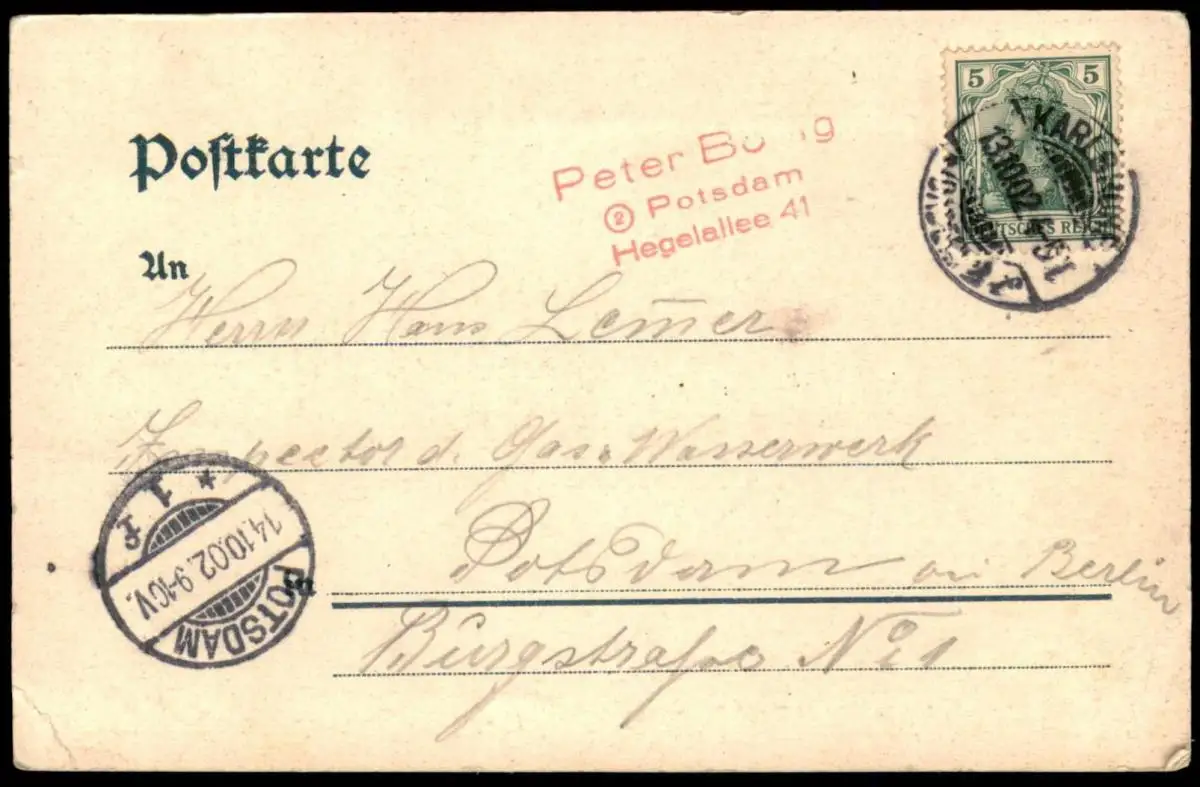 Postkarte
Peter
② Potsdam
Hegelallee 41
5 5
DEUTSCHES REICH
13.10.02.
An
Herrn Hans
Inspector d. Gas u Wasserwerk
in Potsdam Berlin
Burgstraße No 1
POTSDAM
14.10.02. 9-10V.
* 1 P